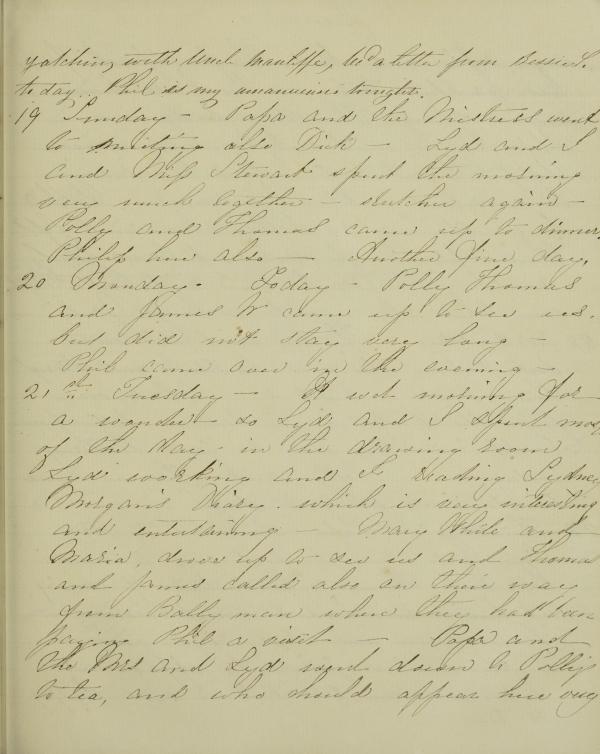 yatching with Uncle , had a letter from Bessie S.
today. Phil is my amanuensis tonight.
19 Sunday - Papa and the Mistress went
to meeting also Dick - Lyd and I
and Miss Stewart spent the morning
very much together - again -
Polly and Thomas came up to dinner,
Philip here also - Another fine day.
20 Monday - Today - Polly Thomas
and James W came up to see us.
but did not stay very long -
Phil came over in the evening -
21st Tuesday - A wet morning for
a wonder so Lyd and I spent most
of the day in the drawing room
Lyd working and I reading Sydney
Morgan's Diary. which is very interesting
and entertaining Mary White and
Maria, drove up to see us and Thomas
and James called also on their way
from Ballyman where they had been
paying Phil a visit - Papa and
the Mrs and Lyd went down to Polly's
to tea, and who should appear here very